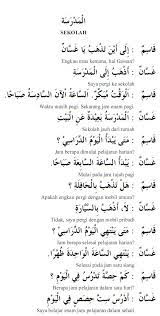 الْمَدْرَسَةُ
SEKOLAH
قَاسِمٌ : إِلَى أَيْنَ تَذْهَبُ يَا غَسَّانُ
Engkau mau kemana, hai Gassan?
غَسَّانُ : أَذْهَبُ إِلَى الْمَدْرَسَةِ
Saya pergi ke sekolah
قَاسِمٌ : الْوَقْتُ مُبَكِّرٌ. السَّاعَةُ الْآنَ السَّادِسَةُ صَبَاحًا.
Waktu masih pagi. Sekarang jam enam pagi
غَسَّانُ : الْمَدْرَسَةُ بَعِيدَةٌ عَنِ الْبَيْتِ
Sekolah jauh dari rumah
قَاسِمٌ : مَتَى يَبْدَأُ الْيَوْمُ الدِّرَاسِيُّ ؟
Jam berapa dimulai pelajaran harian?
غَسَّانُ : يَبْدَأُ السَّاعَةَ السَّابِعَةَ صَبَاحًا.
Mulai pada jam tujuh pagi
قَاسِمٌ : هَلْ تَذْهَبُ بِالْحَافِلَةِ ؟
Apakah engkau pergi dengan mobil
غَسَّانُ : لَا، أَذْهَبُ بِالسَّيَّارَةِ
Tidak, saya pergi dengan mobil pribadi
قَاسِمٌ : مَتَى يَنْتَهِي الْيَوْمُ الدِّرَاسِيُّ ؟
Jam berapa selesai pelajaran harian?
غَسَّانُ : يَنْتَهِي السَّاعَةَ الْوَاحِدَةَ ظُهْرًا.
Selesai pada jam satu siang
قَاسِمٌ : كَمْ حِصَّةً تَدْرُسُ فِي الْيَوْمِ ؟
Berapa jam pelajaran dalam sehari?
غَسَّانُ : أَدْرُسُ سِتَّ حِصَصٍ فِي الْيَوْمِ
Saya belajar enam jam pelajaran dalam sehari